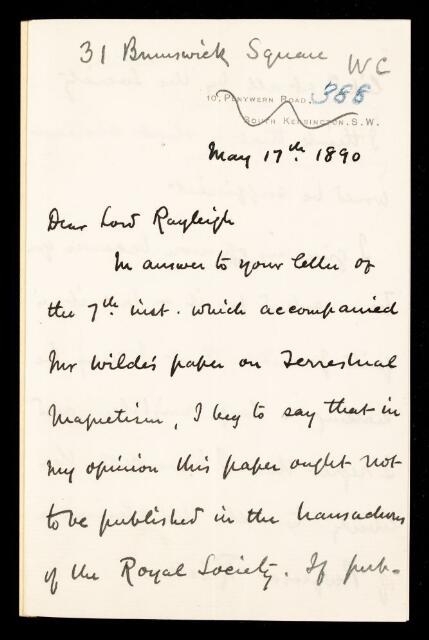 31 Brunswick Square WC
10, Penywern Road, 388
South Kensington, S.W.
May 17th. 1890
Dear Lord Rayleigh
In answer to your letter of
the 7th. inst. which accompanied
Mr Wilde's paper on Terrestrial
Magnetism, I beg to say that in
my opinion this paper ought not
to be published in the transactions
of the Royal Society. If pub-